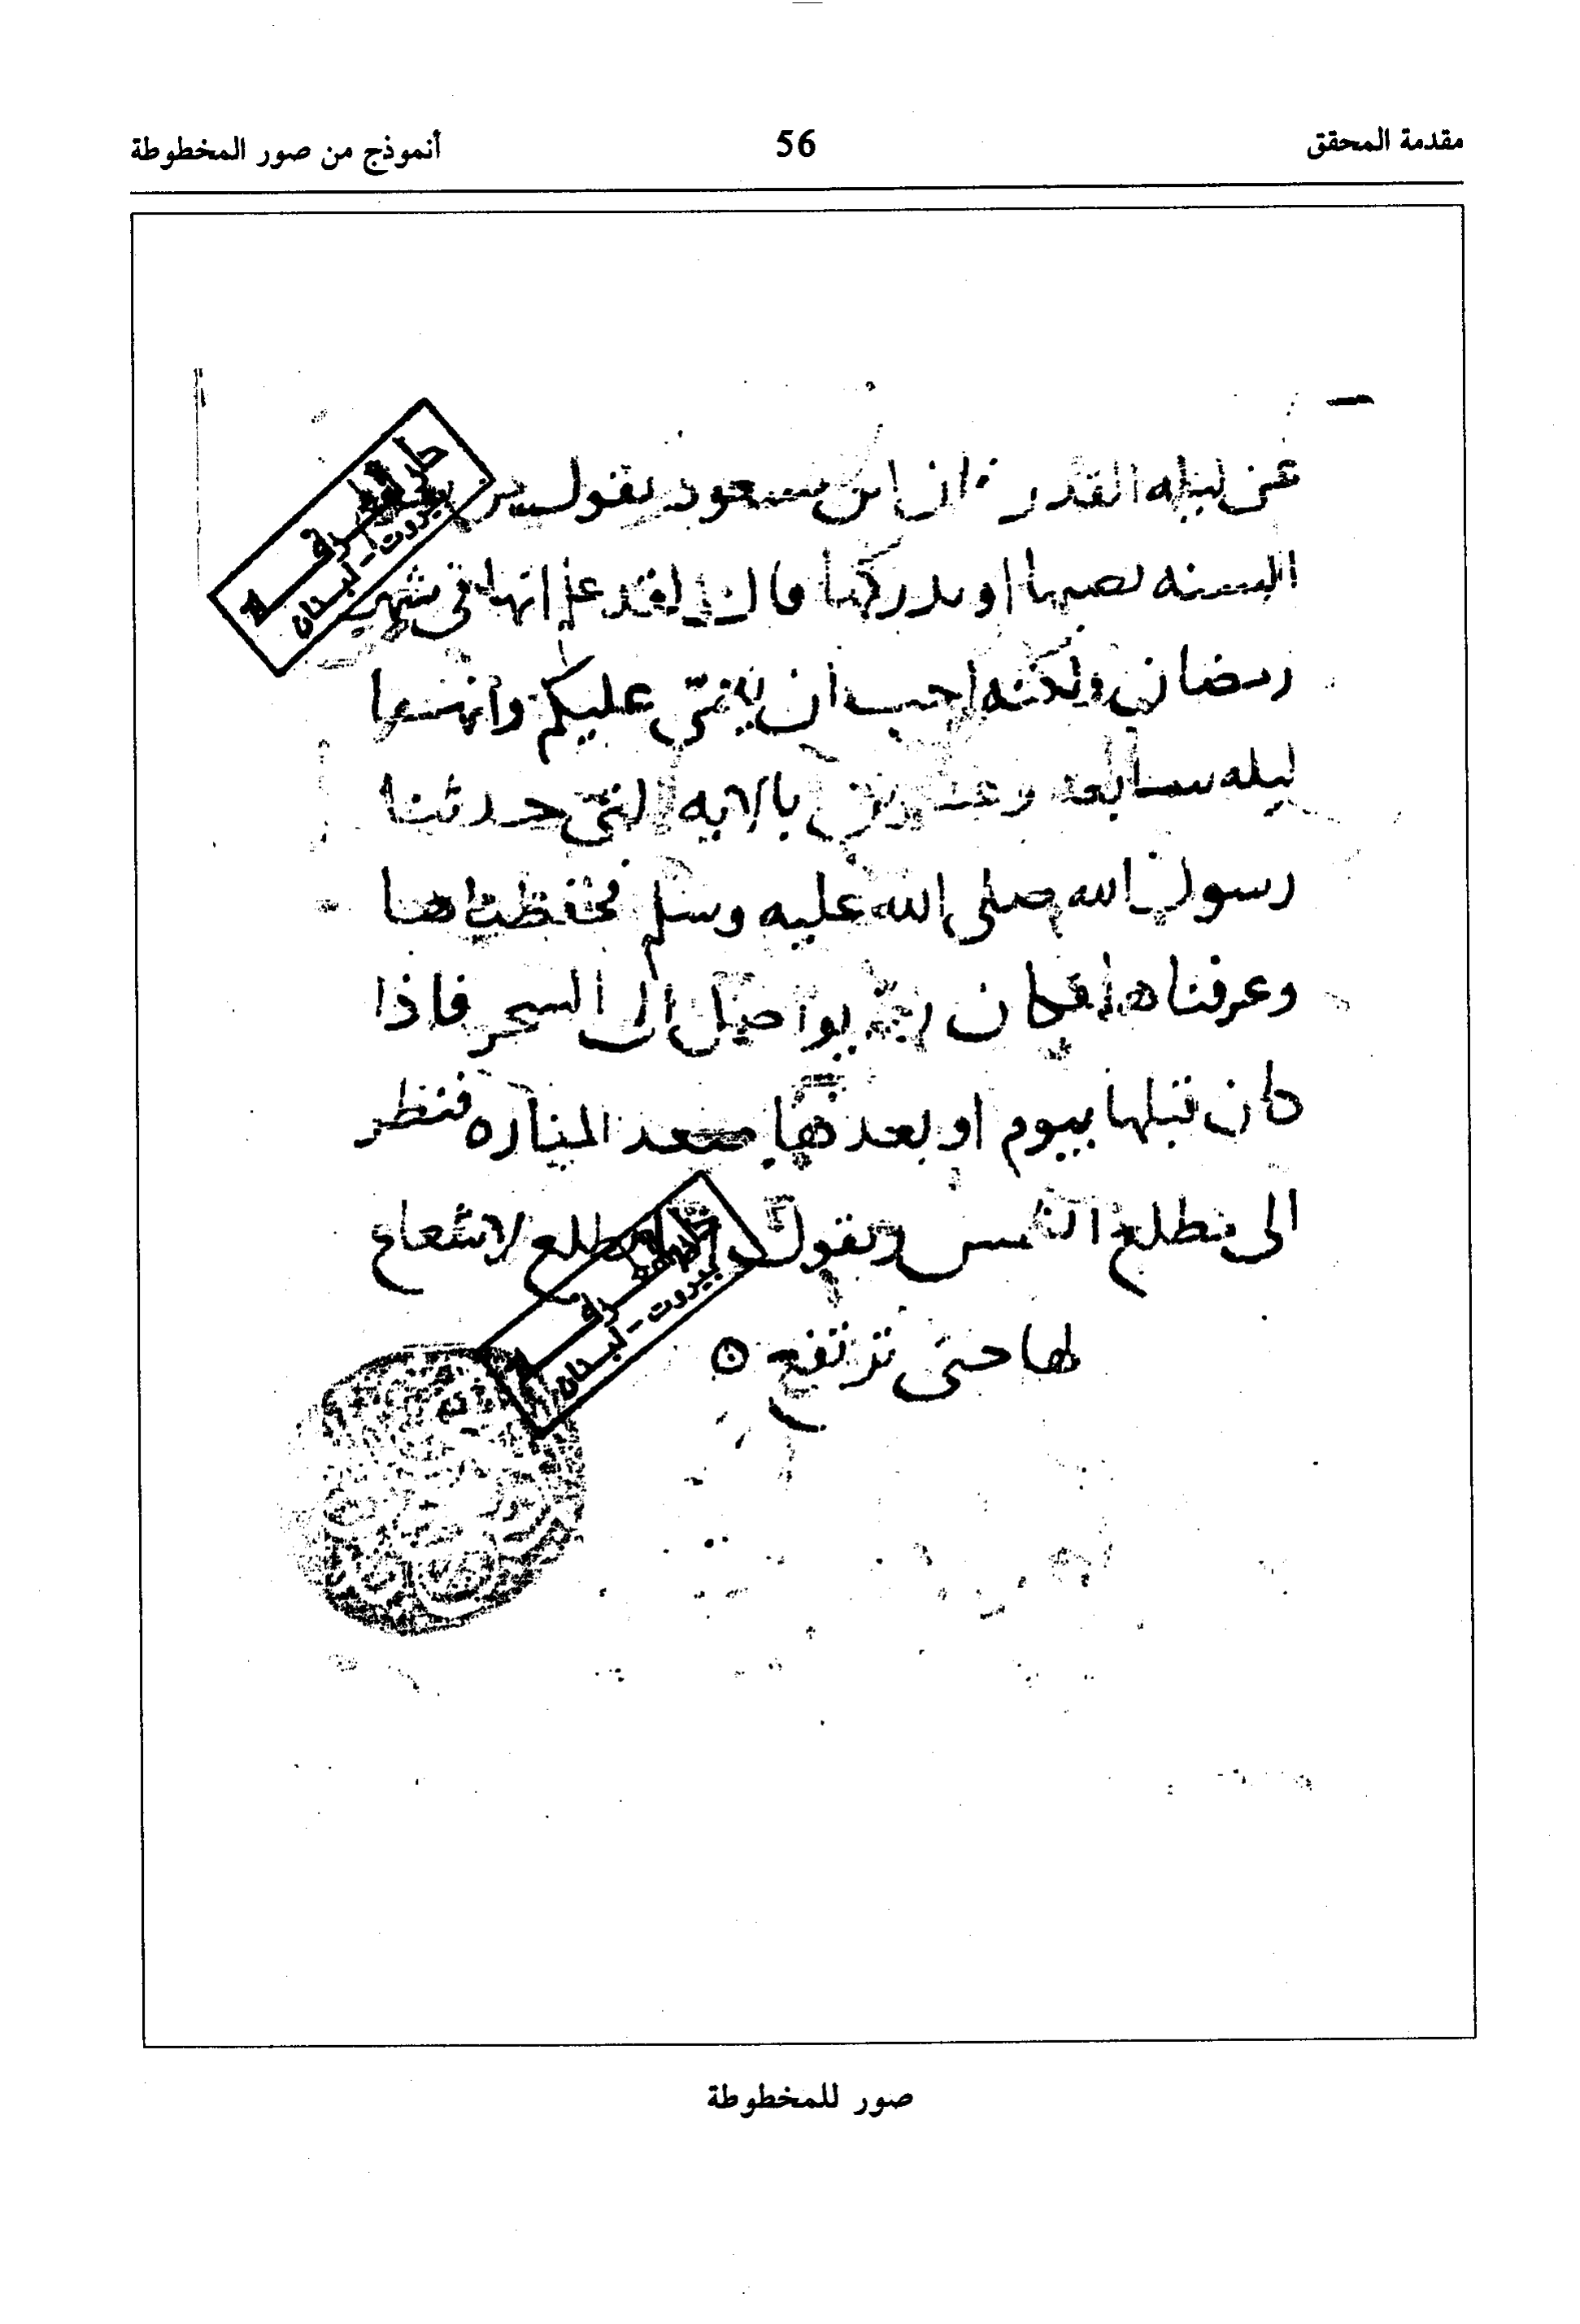 مقدمة المحقق 56 أنموذج من صور المخطوطة
عن ليله القدر ان ابن مسعود يقول
السنه يصبها او يدركها قال لقد علم انها في شهر
رمضان ولكنه احب ان يعمى عليكم وانها
ليله سابعه وعشرين بالايه التى حدثنا
رسول الله صلى الله عليه وسلم فحفظناها
وعرفناها فكان زر يواصل الى السحر فاذا
كان قبلها بيوم او بعدها صعد المناره فنظر
الى مطلع الشمس ويقول تطلع لا شعاع
لها حتى ترتفع
بيروت - لبنان
بيروت - لبنان
صور للمخطوطة